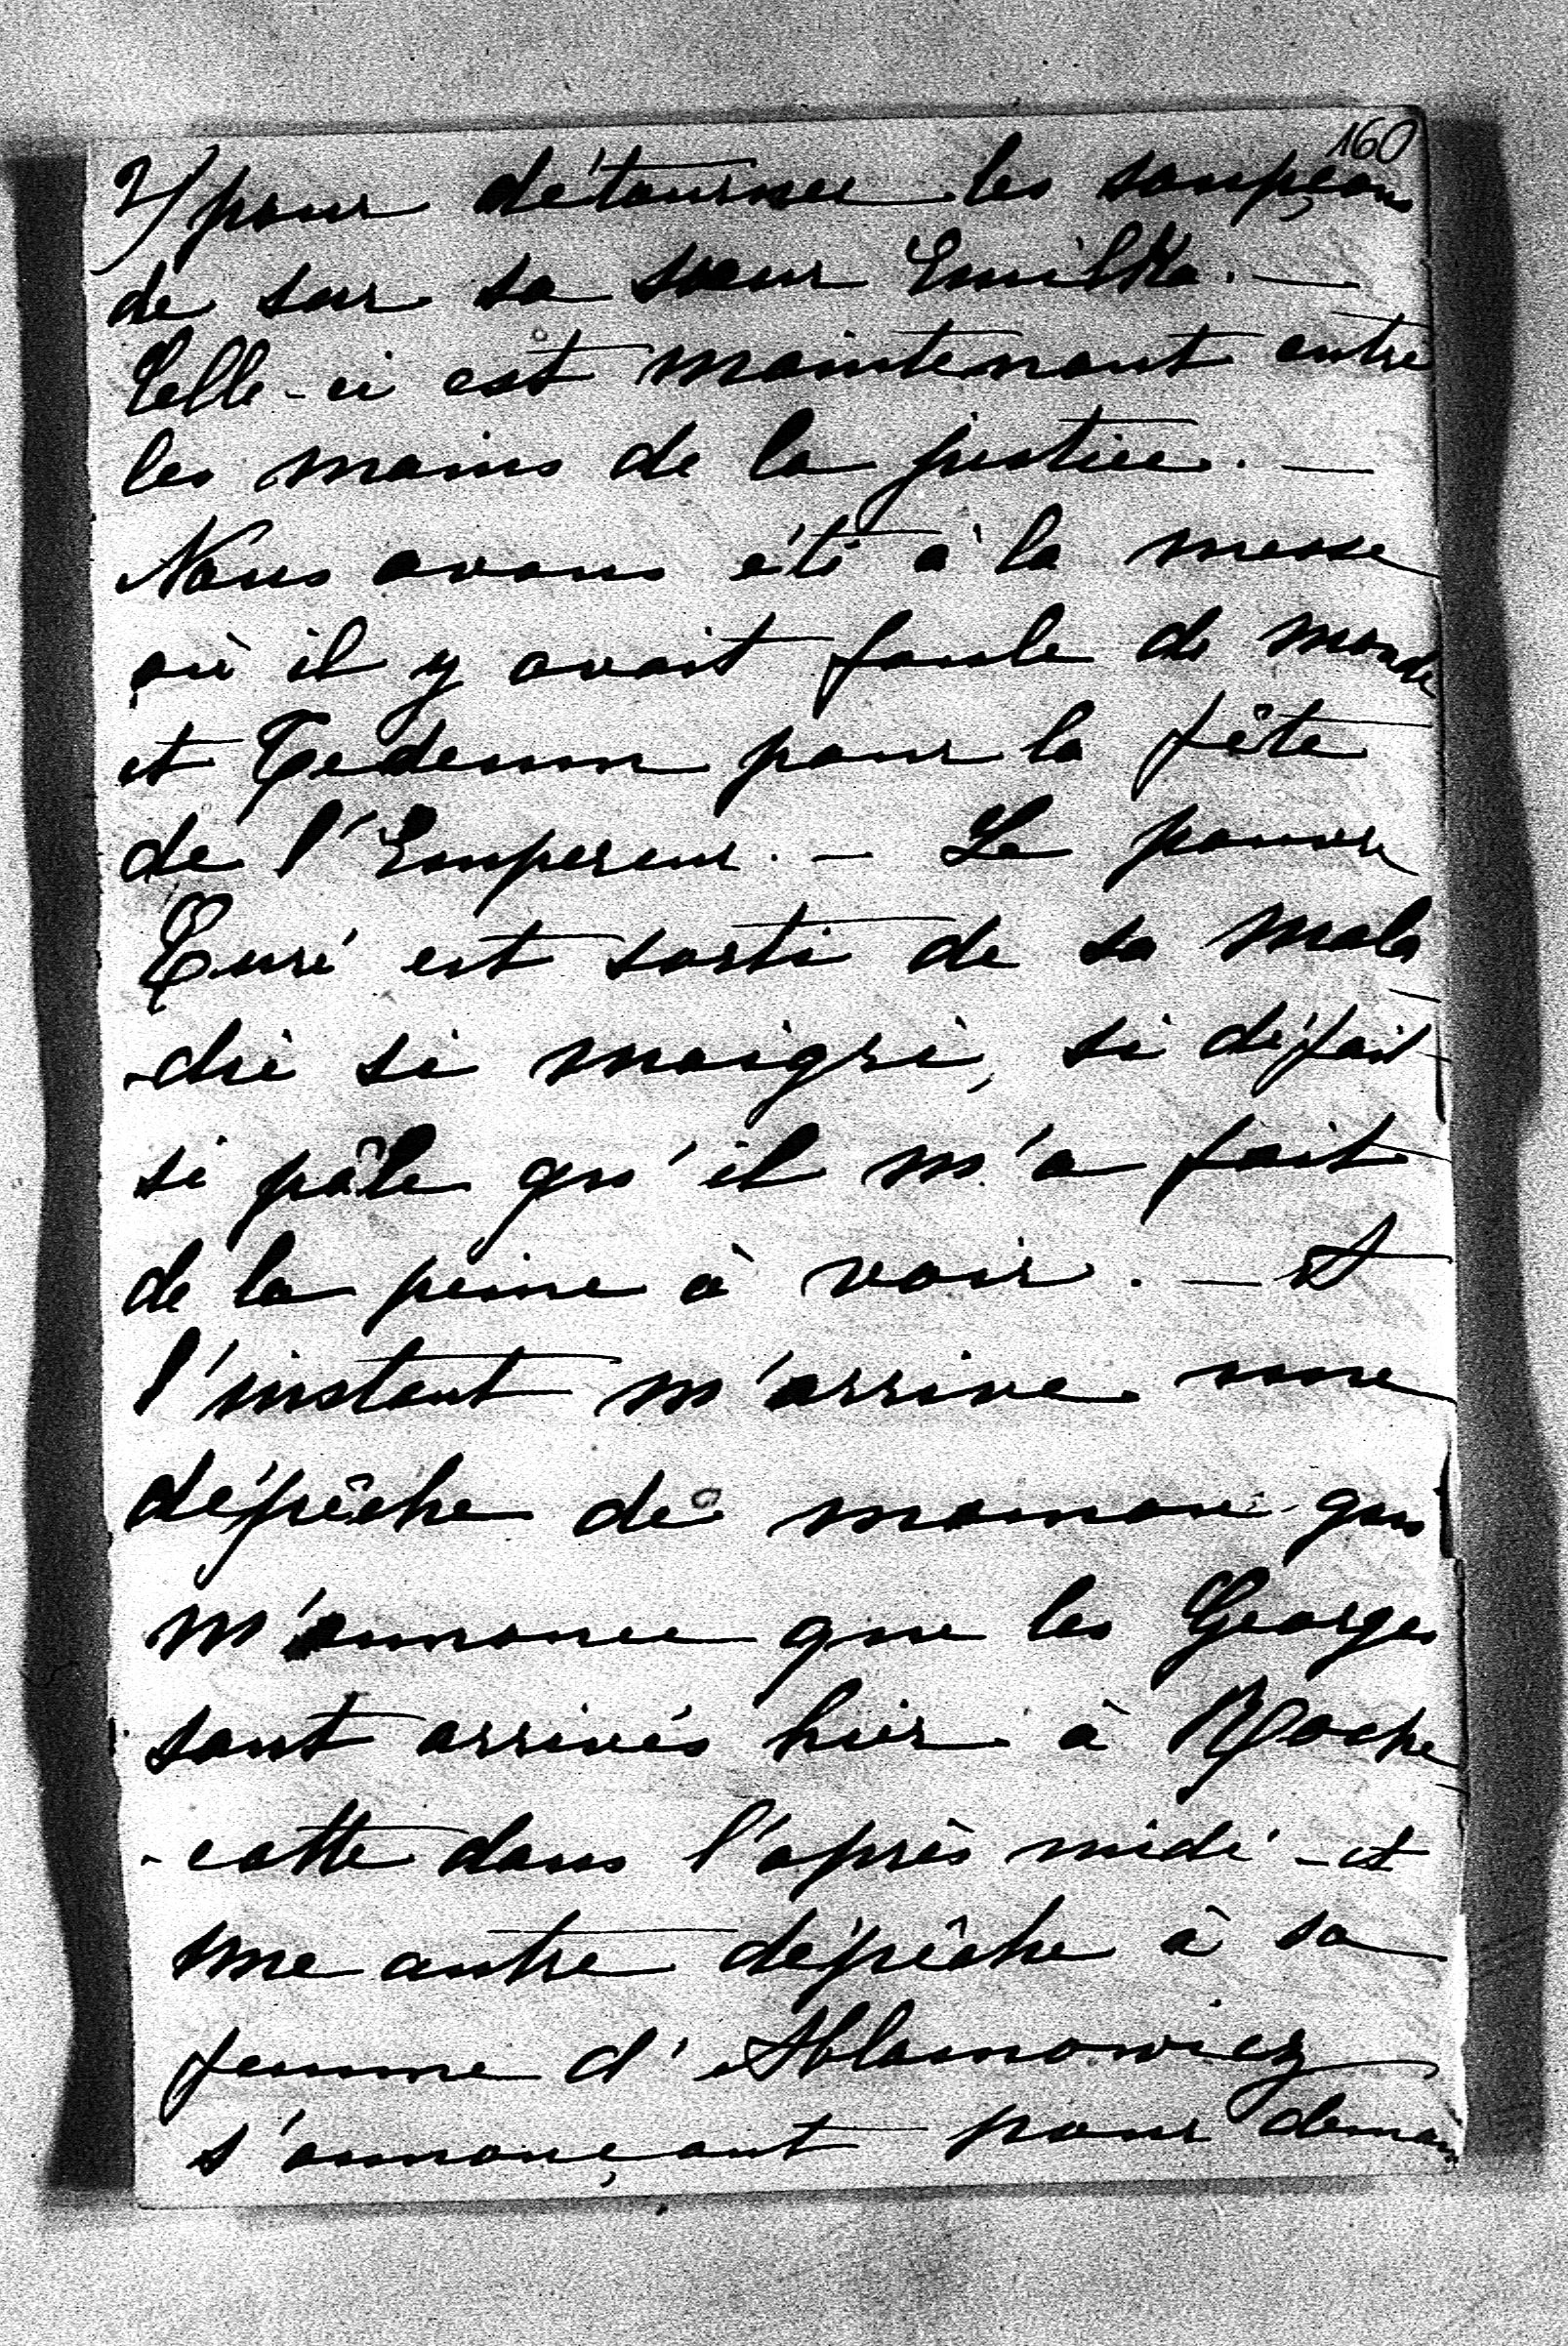 160
2/ pour détourner les soupçons
de sur sa sœur Emilka. —
Celle-ci est maintenant entre
les mains de la justice. —
Nous avons été à la messe
où il y avait foule de monde
et Tedeum pour la fête
de l'Empereur. — Le pauvre
Curé est sorti de sa mala
-die si maigri, si défait
si pâle qu'il m'a fait
de la peine à voir. — A
l'instant m'arrive une
dépêche de maman qui
m'annonce que les Georges
sont arrivés hier à Roche
-cotte dans l'après midi - et
une autre dépêche à sa
femme d'Ablamowicz
s'annonçant pour demain